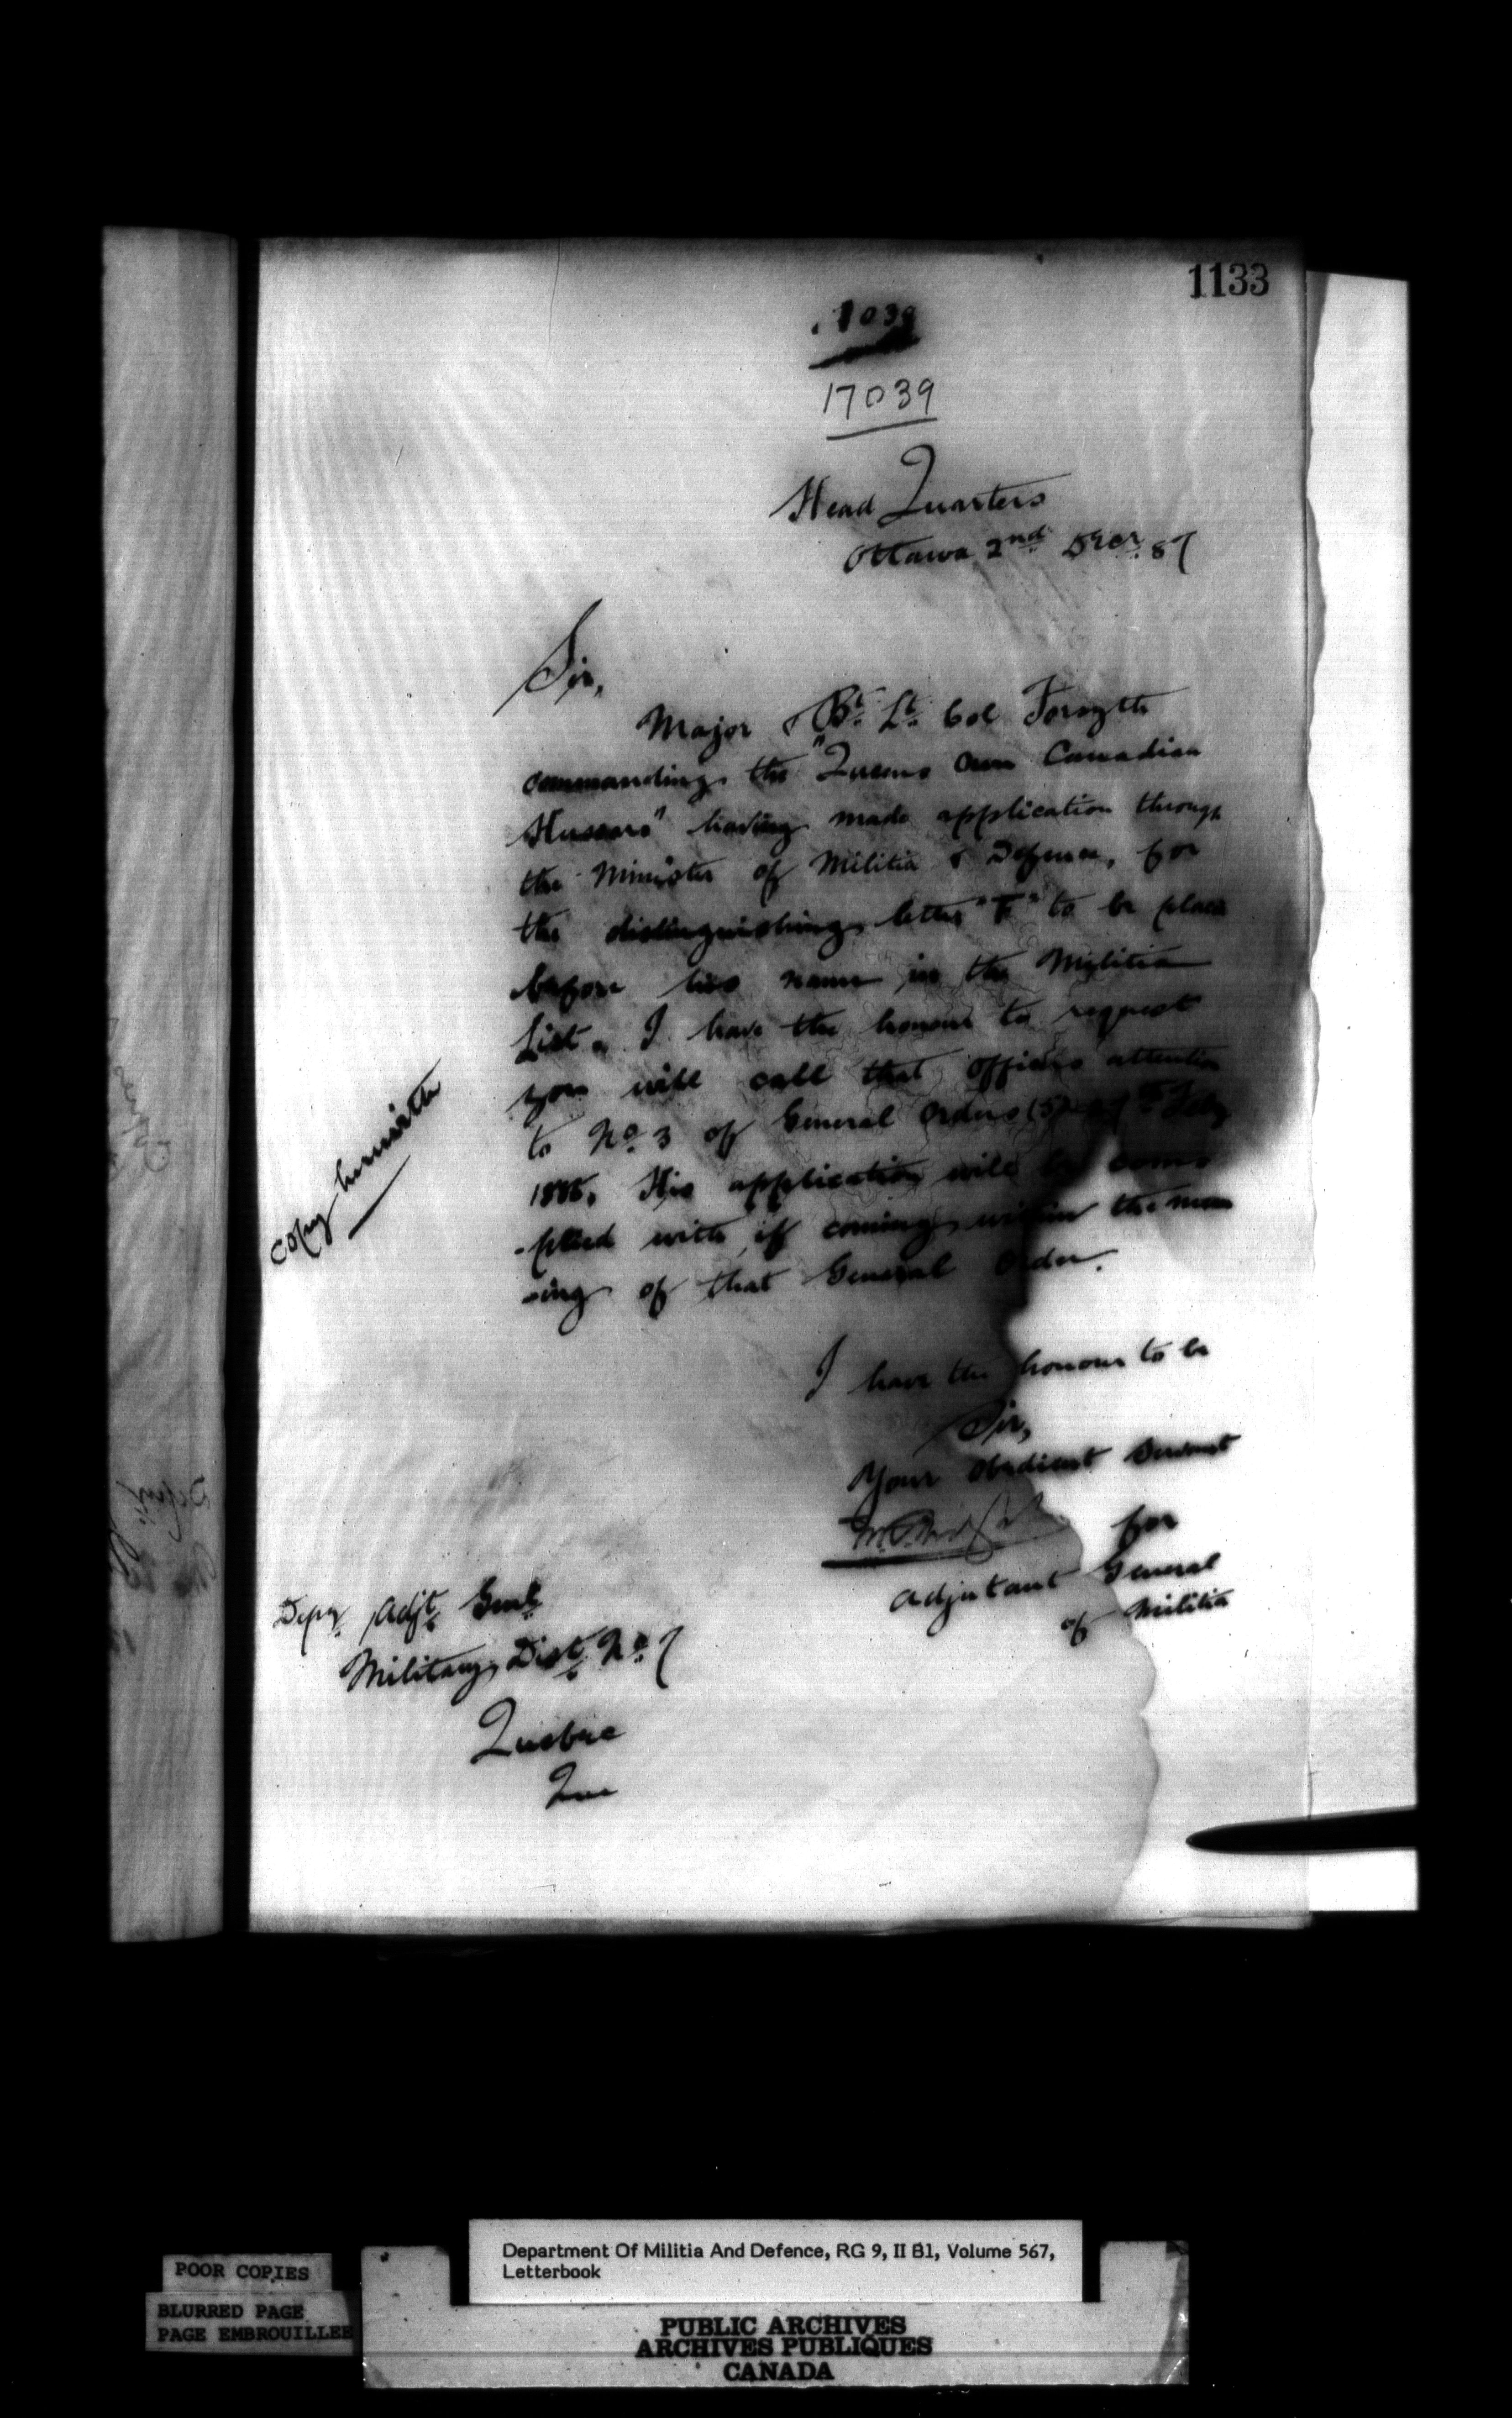 1133
17039
Head Quarters
Ottawa 2nd Decr. 87
Sir,
Major & Bt. Lt. Col Forsyth
commanding the "Queens Own Canadian
Hussars" having made application through
the Minister of Militia & Defence, for
the distinguishing letter "F" to be place
before his name in the Militia
List. I have the honour to request
you will call that officers attention
to No. 3 of General Orders (5) Feby
His application will be com
-plied with if coming within the mea
-ing of that General Order.
Copy herewith
I have the honour to be
Sir,
Your obedient servant
for
Adjutant General
of Militia
Depy. Adjt. Genl.
Military Dist. No. 7
Quebec
Que
Department Of Militia And Defence, RG 9, II B1, Volume 567,
Letterbook
POOR COPIES
BLURRED PAGE
PAGE EMBROUILLEE
PUBLIC ARCHIVES
ARCHIVES PUBLIQUES
CANADA